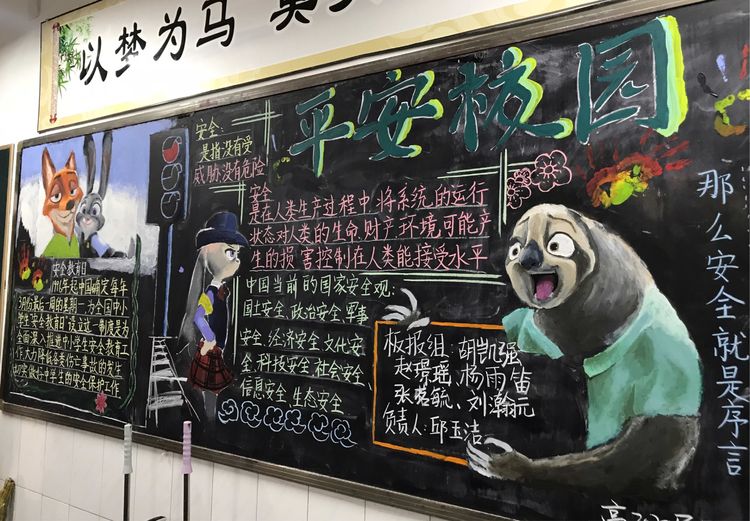 以梦为马
平安校园
安全:
是指没有受
威胁、没有危险
安全
是在人类生产过程中,将系统的运行
状态对人类的生命、财产、环境可能产
生的损害控制在人类能接受水平
中国当前的国家安全观:
国土安全、政治安全、军事
安全、经济安全、文化安
全、科技安全、社会安全、
信息安全、生态安全
安全教育日
1996年起中国确定每年
3月份最后一周的星期一为全国中小
学生安全教育日,设立这一制度是为
全面深入推动中小学生安全教育工
作,大力降低各类伤亡事故的发生
切实做好中学生的安全保护工作
板报组:胡凯强
赵璟瑶、杨雨笛
刘瀚元
负责人:邱玉洁
那么安全就是序言